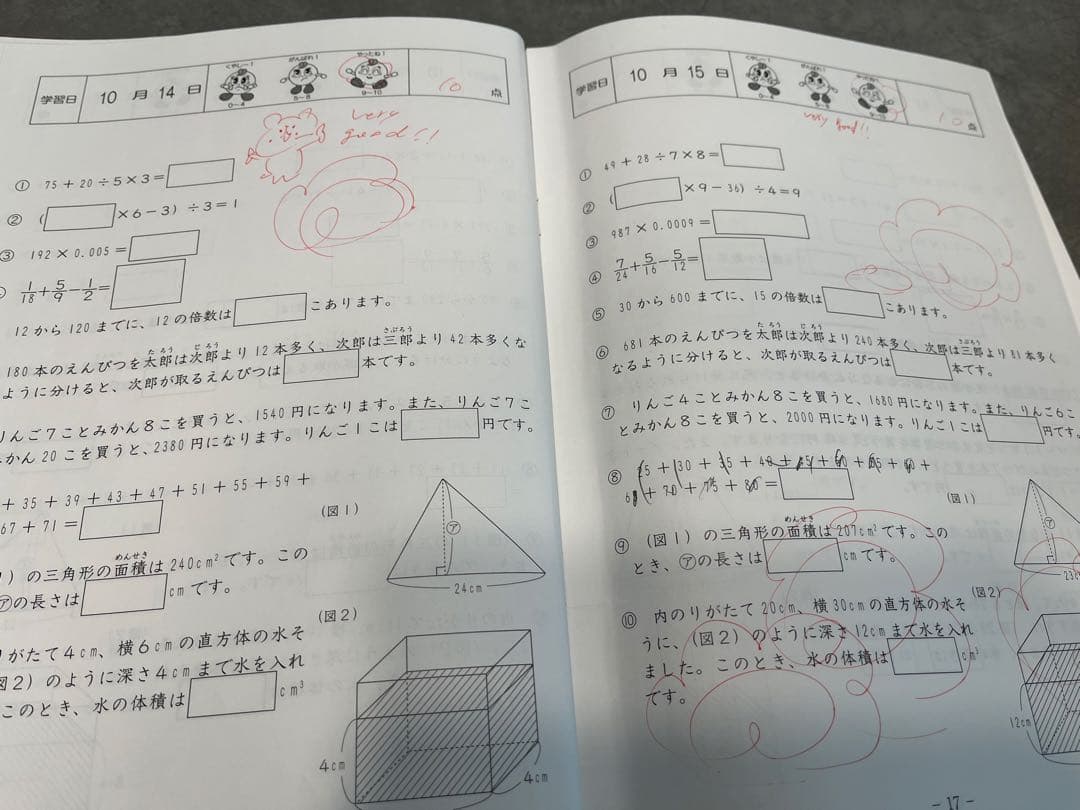 学習日 10月14日
くやしー! がんばれ! やったね!
0～4 5～8 9～10
10点
very good!!
① 75+20÷5×3=
② ( ×6-3)÷3=1
③ 192×0.005=
1/18+5/9-1/2=
12から120までに、12の倍数は こあります。
180本のえんぴつを太郎は次郎より12本多く、次郎は三郎より42本多くな
ように分けると、次郎が取るえんぴつは 本です。
りんご7ことみかん8こを買うと、1540円になります。また、りんご7こ
みかん20こを買うと、2380円になります。りんご1こは 円です。
+35+39+43+47+51+55+59+
67+71=
(図1)
)の三角形の面積は240cm²です。この
㋐の長さは cmです。
㋐
24cm
(図2)
りがたて4cm、横6cmの直方体の水そ
図2)のように深さ4cmまで水を入れ
このとき、水の体積は cm³
4cm
4cm
学習日 10月15日
くやしー! がんばれ!
0～4 5～8 9～10
10点
very good!!
① 49+28÷7×8=
② ( ×9-36)÷4=9
③ 987×0.0009=
④ 7/24+5/16-5/12=
⑤ 30から600までに、15の倍数は こあります。
⑥ 681本のえんぴつを太郎は次郎より240本多く、次郎は三郎より81本多く
なるように分けると、次郎が取るえんぴつは 本です。
⑦ りんご4ことみかん8こを買うと、1680円になります。また、りんご6こ
とみかん8こを買うと、2000円になります。りんご1こは 円です。
⑧ 25+30+35+40+ + + + +
+70+75+80=
(図1)
⑨ (図1)の三角形の面積は207cm²です。この
とき、㋐の長さは cmです。
㋐
23c
(図2)
⑩ 内のりがたて20cm、横30cmの直方体の水そ
うに、(図2)のように深さ12cmまで水を入れ
ました。このとき、水の体積は cm³
です。
12cm
-17-